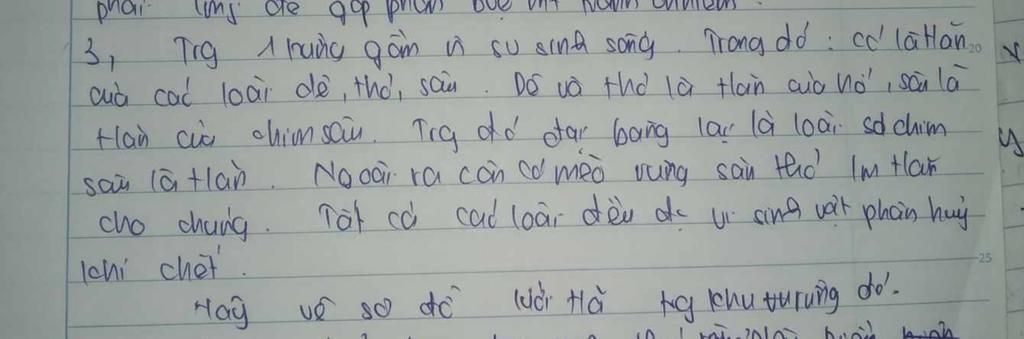 phải
3, Trg 1 rừng gồm vi sv sinh sống. Trong đó: cỏ là tăn
của các loài dê, thỏ, sâu. Dê và thỏ là tăn của hổ, sâu là
tăn của chim sâu. Trg đó đại bàng lại là loài sd chim
sâu là tăn. Ngoài ra còn có mèo rừng săn thỏ lm tăn
cho chúng. Tất cả các loài đều đc vi sinh vật phân huỷ
khi chết.
Hãy vẽ sơ đồ lưới tă trg khu rừng đó.